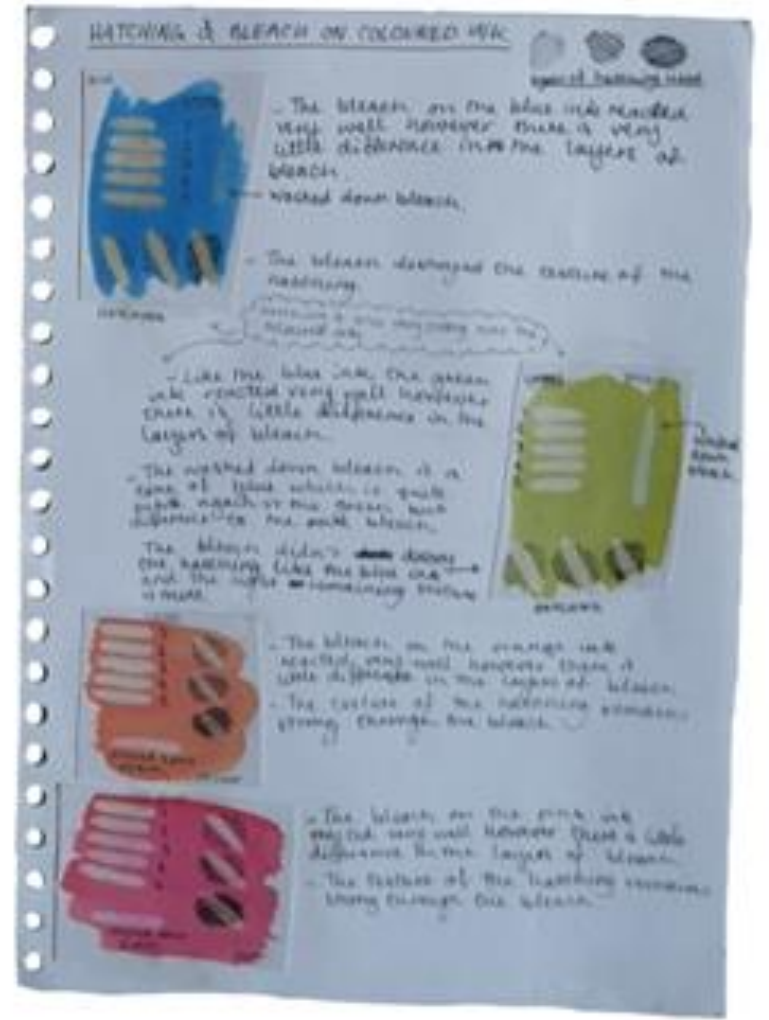 HATCHING & BLEACH ON COLOURED INK
types of hatching used
- The bleach on the blue ink reacted
very well however there is very
little difference into the layers of
bleach.
washed down bleach.
- The bleach destroyed the texture of the
hatching.
hatching
- Like the blue ink the green
ink reacted very well however
there is little difference in the
layers of bleach.
washed
down
bleach.
- The washed down bleach is a
tone of blue which is quite
the green but
to the bleach.
The bleach didn't destroy
the hatching like the blue ink
and the remaining texture
is more
hatching
- The bleach on the orange ink
reacted very well however there is
little difference in the layers of bleach.
- The texture of the hatching remains
strong through the bleach.
washed down
bleach
- The bleach on the pink ink
reacted very well however there is little
difference in the layers of bleach.
- The texture of the hatching remains
strong through the bleach.
washed down
bleach